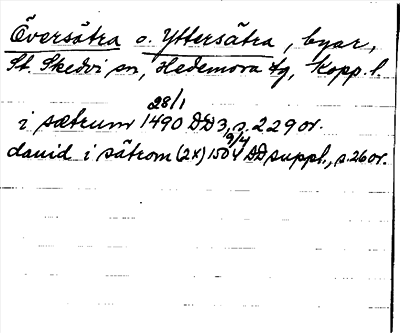 Översätra o. Yttersätra, byar,
St. Skedvi sn, Hedemora tg, Kopp. l.
28/1
i sætrum 1490 DD3, s. 229 or.
9/4
dauid i sätrom (2x) 1504 DD suppl., s. 26 or.